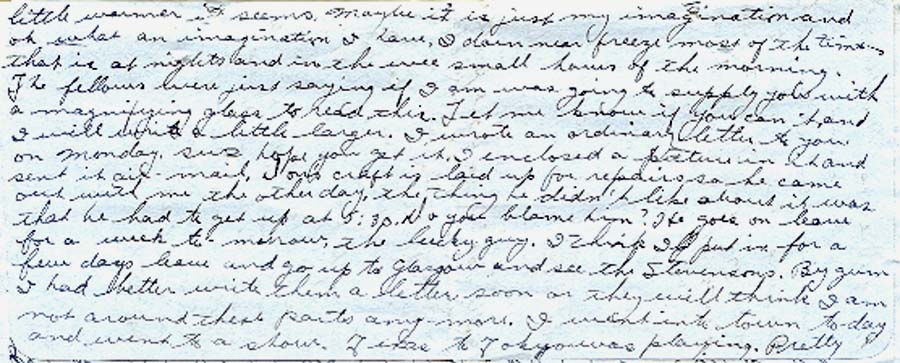 little warmer it seems. Maybe it is just my imagination and
oh what an imagination I have, I darn near freeze most of the time-
that is at nights and in the wee small hours of the morning.
The fellows were just saying if I am was going to supply you with
a magnifying glass to read this. Let me know if you can't and
I will write a little larger. I wrote an ordinary letter to you
on Monday. sure hope you get it, I enclosed a picture in it and
sent it air-mail. craft is laid up for repairs so he came
out with me the other day, the thing he didn't like about it was
that he had to get up at 5:30. Do you blame him? He goes on leave
for a week to-morrow, the lucky guy. I think I'll put in for a
few days leave and go up to Glasgow and see the Stevensons. By gum
I had better write them a letter soon or they will think I am
not around these parts any more. I went into town to-day
and went to a show. Texas to Tokyo was playing. Pretty